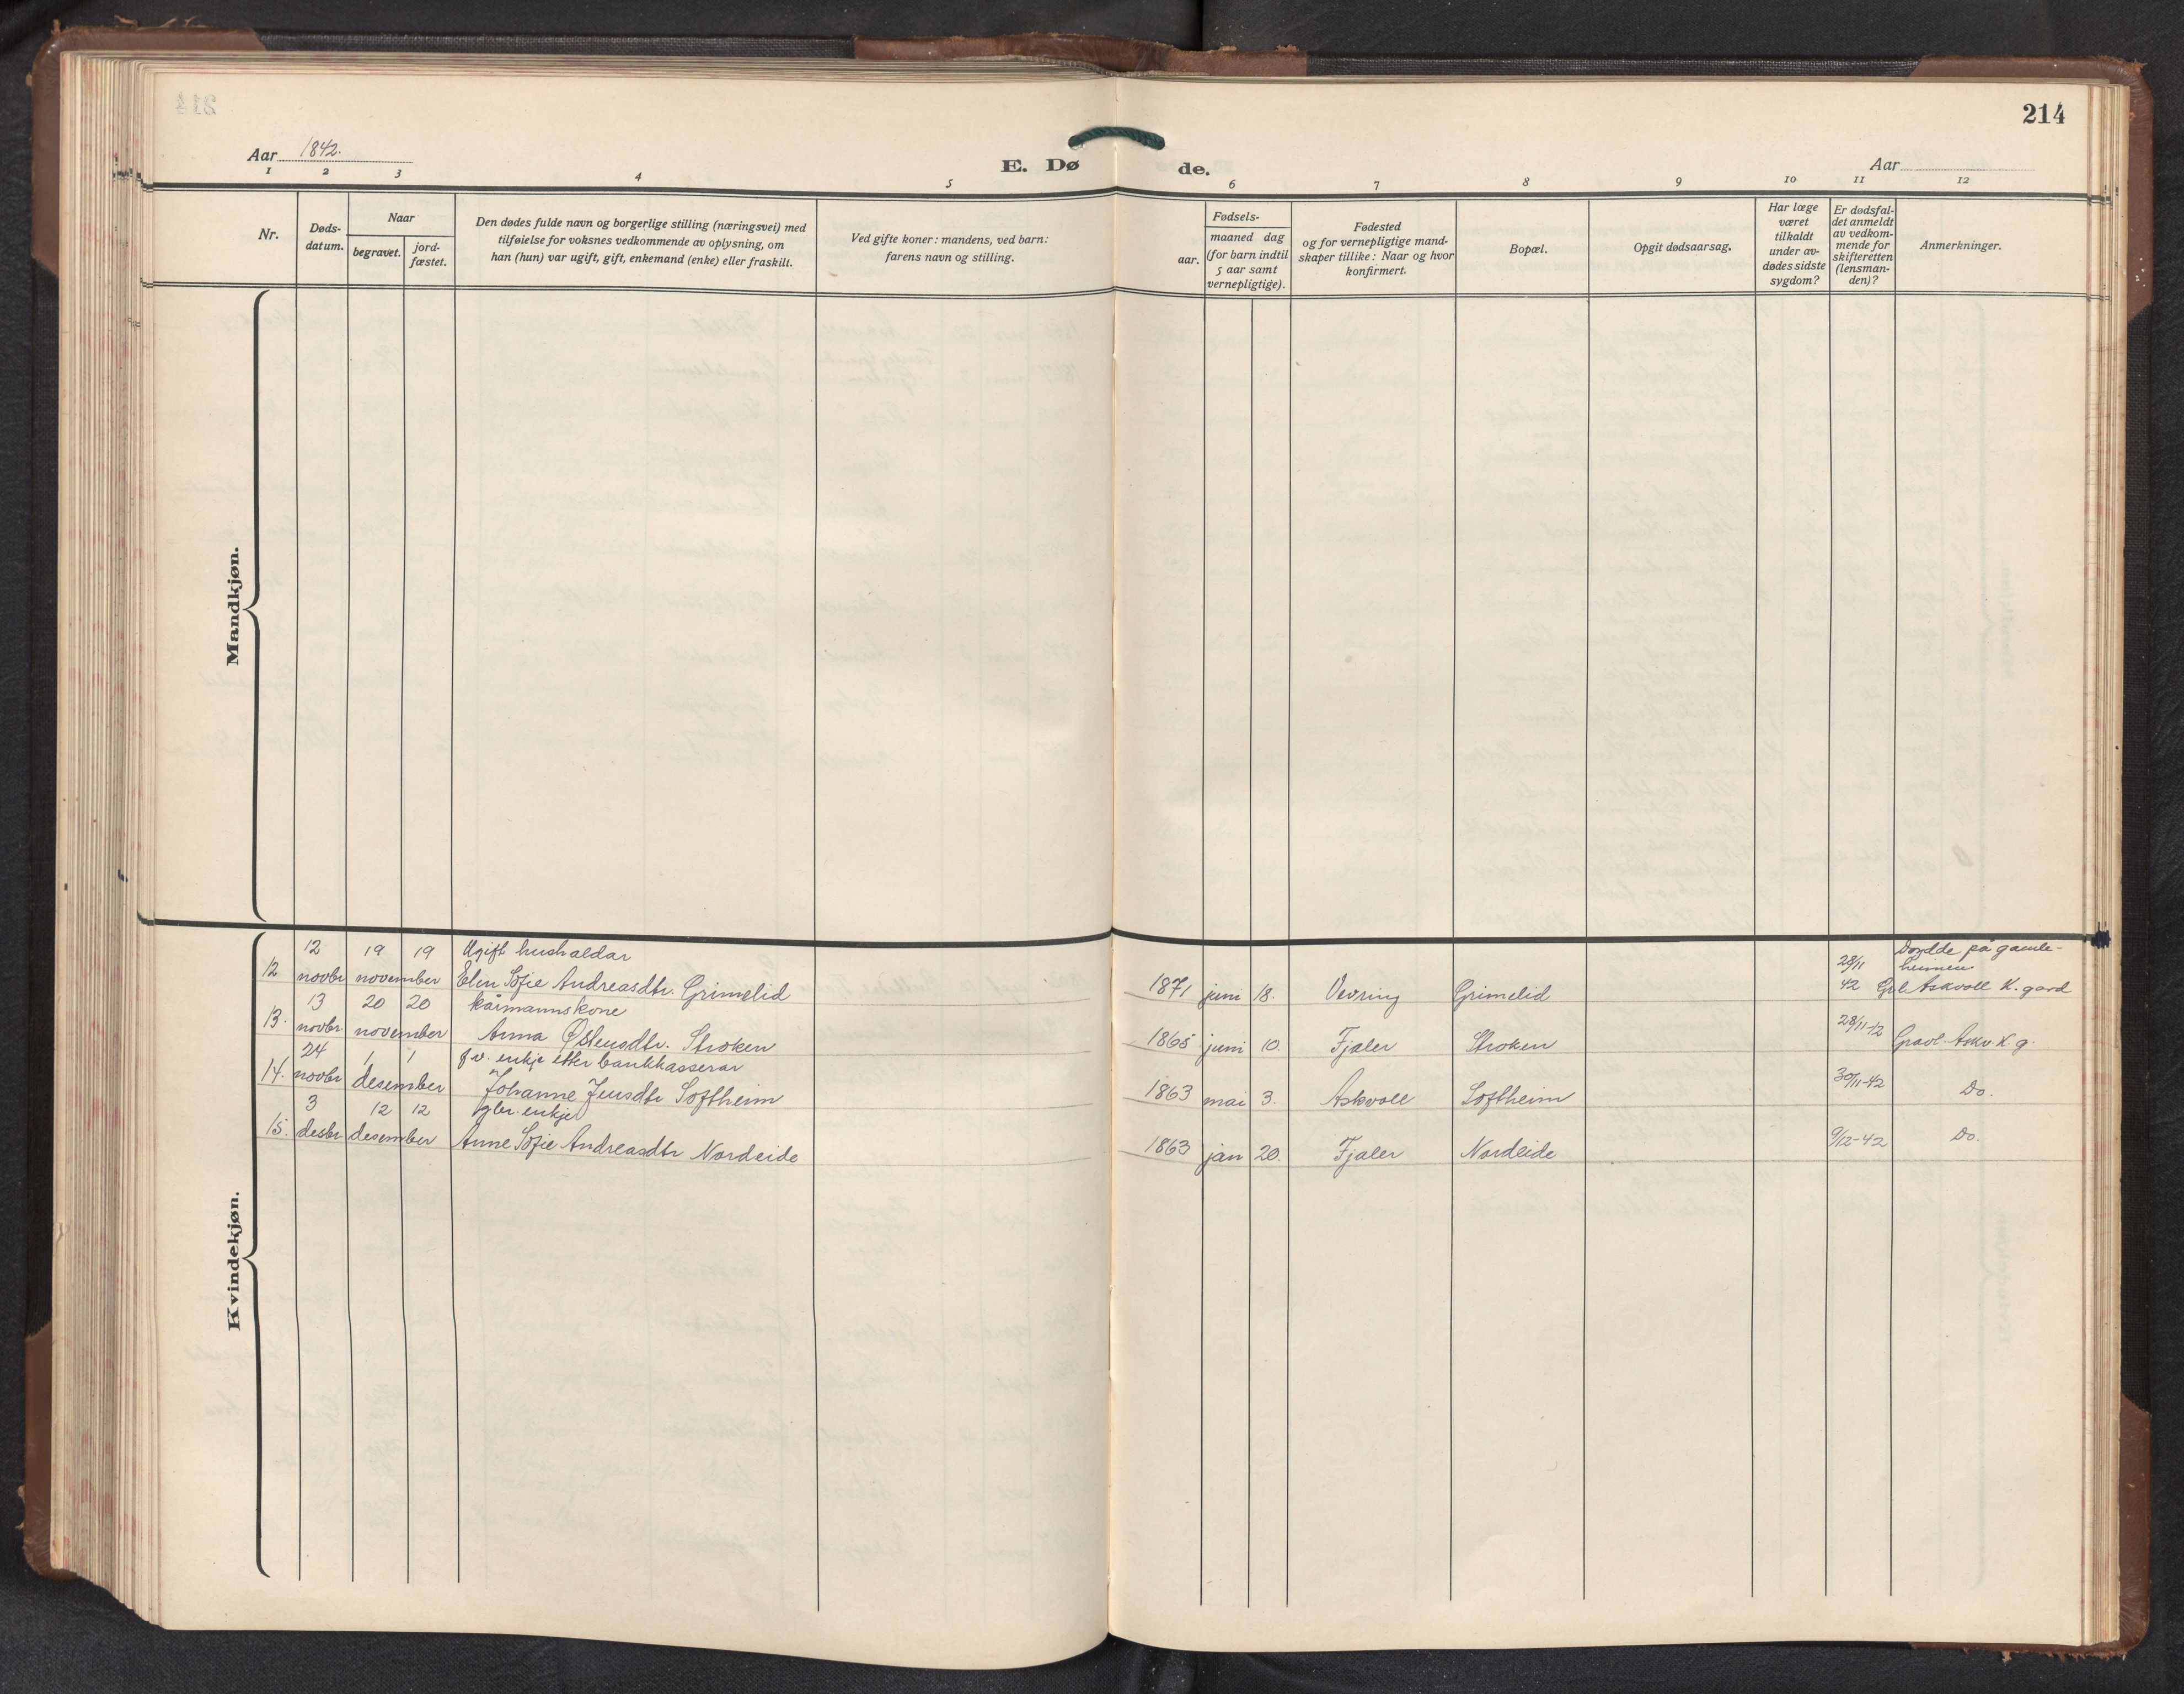 214
Aar 1842.
E. Døde.
Aar
1 2 3 4 5 6 7 8 9 10 11 12
Nr.
Døds-
datum.
Naar
begravet.
jord-
fæstet.
Den dødes fulde navn og borgerlige stilling (næringsvei) med
tilføielse for voksnes vedkommende av oplysning, om
han (hun) var ugift, gift, enkemand (enke) eller fraskilt.
Ved gifte koner: mandens, ved barn:
farens navn og stilling.
Fødsels-
aar.
maaned dag
(for barn indtil
5 aar samt
vernepligtige).
Fødested
og for vernepligtige mand-
skaper tillike: Naar og hvor
konfirmert.
Bopæl.
Opgit dødsaarsag.
Har læge
været
tilkaldt
under av-
dødes sidste
sygdom?
Er dødsfal-
det anmeldt
av vedkom-
mende for
skifteretten
(lensman-
den)?
Anmerkninger.
Mandkjøn.
Kvindekjøn.
12 19 19 Ugift hushaldar 28/11 Døydde på gamle-
heimen
12 novbr november Elen Sofie Andreasdtr. Grimelid 1871 juni 18. Vevring Grimelid 42 Askvoll K. gard
13 20 20 kårmannskone
13. novbr november Anna Østensdtr. Stroken 1865 juni 10. Fjaler Stroken 28/11-42 Gravl. Askv. K. g.
24 1 1 f v. enkje etter bankkasserar
14. novbr desember Johanne Jensdtr Softheim 1863 mai 3. Askvoll Softheim 30/11-42 Do.
3 12 12 enkje
15. desbr desember Anne Sofie Andreasdtr Nordeide 1863 jan 20. Fjaler Nordeide 9/12-42 Do.